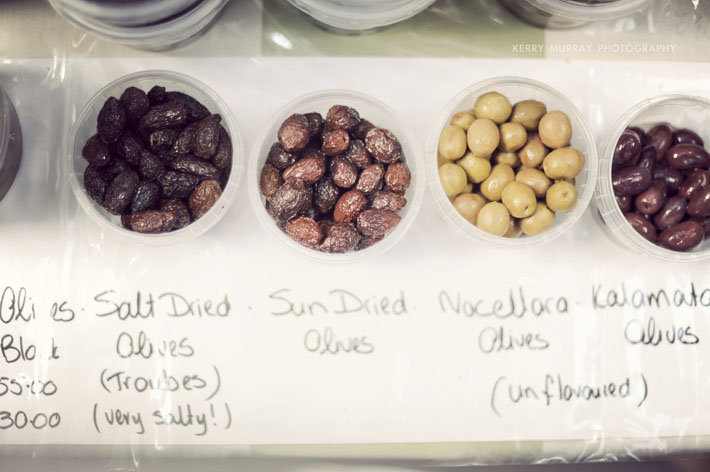 KERRY MURRAY PHOTOGRAPHY
Olives
Black
55.00
30.00
Salt Dried
Olives
(Troubes)
(very salty!)
Sun Dried
Olives
Nocellara
Olives
Kalamata
Olives
(unflavoured)